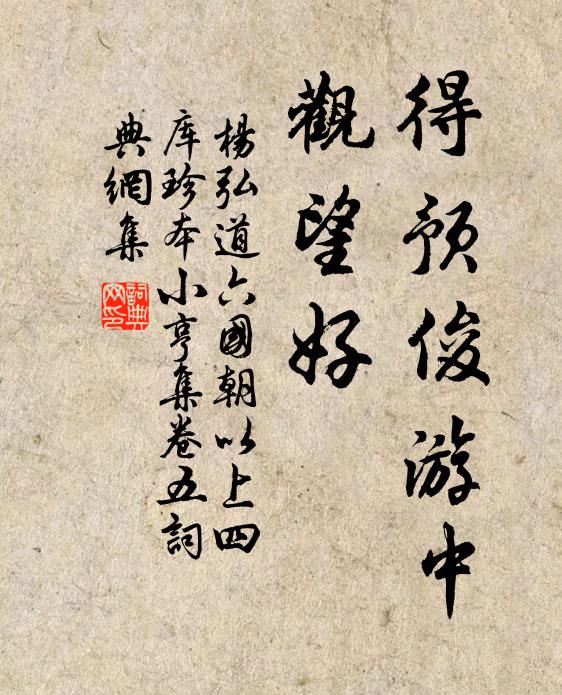 得预俊游中
觀望好
楊弘道六國朝以上四
库珍本小亨集卷五詞
典網集
詞典
网印